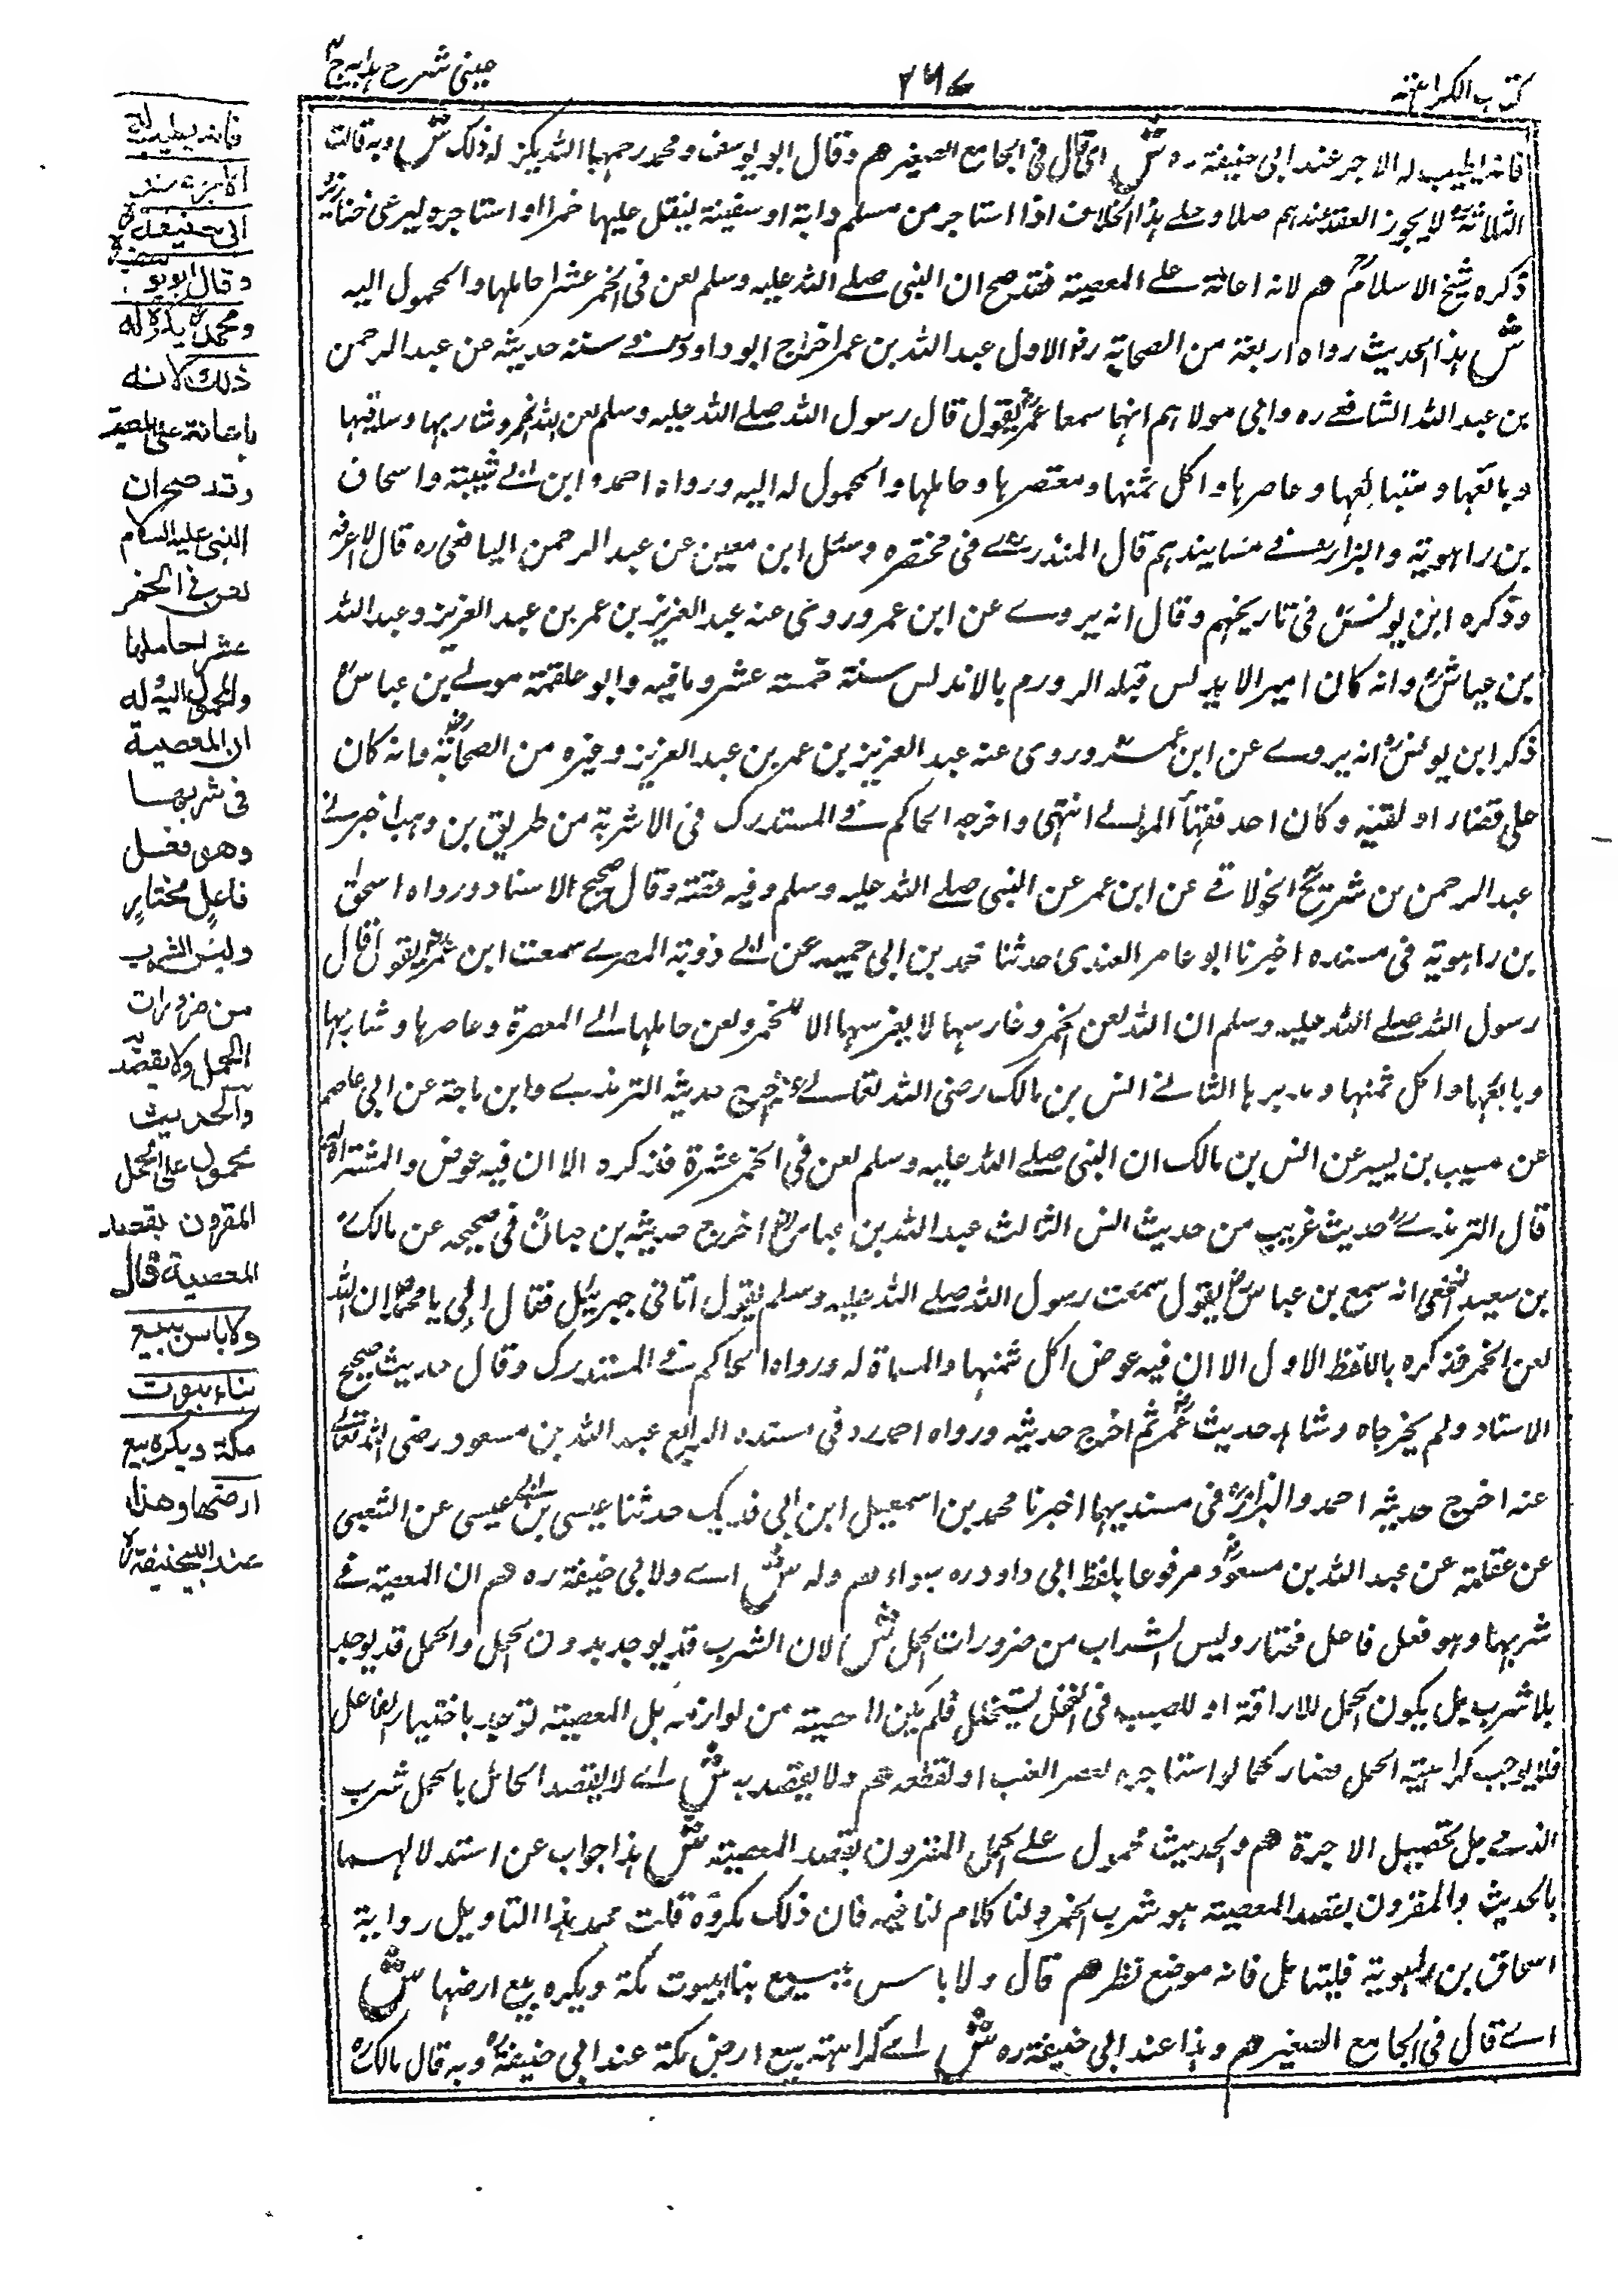 كتاب الكراهية
٢٦٧
عيني شرح هدايه ج٣
فانه يطيب له الاجر عند ابي حنيفة ره ش اي قال في الجامع الصغير هم وقال ابو يوسف ومحمد رحمهما الله يكره له ذلك ش وبه قالت
الثلاثة لا يجوز العقد عندهم اصلا وعلى هذا الخلاف اذا استاجر من مسلم دابة او سفينة لينقل عليها خمرا او استاجره ليرعى خنازير
ذكره شيخ الاسلام هم لانه اعانة على المعصية فقد صح ان النبي صلے الله عليه وسلم لعن في الخمر عشرا حاملها والمحمول اليه
ش هذا الحديث رواه اربعة من الصحابة رض الاول عبد الله بن عمر اخرج ابو داود في سننه حديثه عن عبد الرحمن
بن عبد الله الشافعے ره وابي مولاهم انهما سمعا عمر يقول قال رسول الله صلے الله عليه وسلم لعن الله الخمر وشاربها وساقيها
وبائعها ومبتاعها وعاصرها واكل ثمنها ومعتصرها وحاملها والمحمول له اليه ورواه احمد وابن ابے شيبة واسحاق
بن راهوية والبزار في مسانيدهم قال المنذرے في مختصره وسئل ابن معين عن عبد الرحمن اليافعي ره قال لا اعرفه
وذكره ابن يونس في تاريخهم وقال انه يروے عن ابن عمر وروى عنه عبد العزيز بن عمر بن عبد العزيز وعبد الله
بن عياش وانه كان امير الاندلس قبله الروم بالاندلس سنة خمسة عشر ومائة وابو علقمة مولے بن عباس
ذكر ابن يونس انه يروے عن ابن عمر وروى عنه عبد العزيز بن عمر بن عبد العزيز وغيره من الصحابة وانه كان
على قضاء افريقية وكان احد فقهاء الموالے انتهى واخرجه الحاكم في المستدرك في الاشربة من طريق بن وهب اخبرني
عبد الرحمن بن شريح الخولاني عن ابن عمر عن النبي صلے الله عليه وسلم وفيه قصة وقال صحيح الاسناد ورواه اسحق
بن راهوية في مسنده اخبرنا ابو عامر العقدي حدثنا محمد بن ابي حميد عن ابے توبة المصرے سمعت ابن عمر يقول قال
رسول الله صلے الله عليه وسلم ان الله لعن الخمر وغارسها لا يغرسها الا للخمر ولعن حاملها الے المعصرة وعاصرها وشاربها
وبايعها واكل ثمنها ومديرها الثاني انس بن مالك رضي الله تعالے عنه اخرج حديثه الترمذے وابن ماجة عن ابي عاصم
عن شبيب بن بشير عن انس بن مالك ان النبي صلے الله عليه وسلم لعن في الخمر عشرة فذكره الا ان فيه عوض والمشتراة له
قال الترمذے حديث غريب من حديث انس الثالث عبد الله بن عباس اخرج حديثه بن حبان في صحيحه عن مالك
بن سعيد انه سمع بن عباس يقول سمعت رسول الله صلے الله عليه وسلم يقول اتاني جبريل فقال لي يا محمد ان الله
لعن الخمر فذكره باللفظ الاول الا ان فيه عوض اكل ثمنها والمسقاة له ورواه الحاكم في المستدرك وقال حديث صحيح
الاسناد ولم يخرجاه وشاهده حديث عمر ثم اخرج حديثه ورواه احمد في مسنده الرابع عبد الله بن مسعود رضي الله تعالے
عنه اخرج حديثه احمد والبزار في مسنديهما اخبرنا محمد بن اسمعيل ابن ابي فديك حدثنا عيسى بن ابي عيسى عن الشعبي
عن علقمة عن عبد الله بن مسعود مرفوعا بلفظ ابي داود ره سواء هم وله ش اے ولابي حنيفة ره هم ان المعصية في
شربها وهو فعل فاعل مختار وليس الشراب من ضرورات الحمل ش لان الشرب قد يوجد بدون الحمل والحمل قد يوجد
بلا شرب بل يكون الحمل للاراقة او للصب في الخل ليتخلل فلم يكن المعصية من لوازمه بل المعصية توجد باختيار الفاعل
فلا يوجب كراهية الحمل فصار كما لو استاجره لعصر العنب او لقطعه هم ولا يقصد به ش اے لا يقصد الحامل بالحمل شرب
الذے بل تحصيل الاجرة هم والحديث محمول علے الحمل المقرون بقصد المعصية ش هذا جواب عن استدلالهما
بالحديث والمقرون بقصد المعصية هو شرب الخمر ولنا كلام لنا فيه فان ذلك مكروه قلت محمد هذا التاويل رواية
اسحاق بن راهوية فليتامل فانه موضع نظر هم قال ولا باس ببيع بناء بيوت مكة ويكره بيع ارضها ش
اے قال في الجامع الصغير هم وهذا عند ابي حنيفة ره ش اے كراهته بيع ارض مكة عند ابي حنيفة وبه قال مالك
فانه يطيب له
الاجر عند
ابي حنيفة
وقال ابو يوسف
ومحمد يكره له
ذلك لانه
باعانة على المعصية
وقد صح ان
النبي عليه السلام
لعن في الخمر
عشرا حاملها
والمحمول اليه له
ان المعصية
في شربها
وهو فعل
فاعل مختار
وليس الشرب
من ضرورات
الحمل ولا يقصد به
والحديث
محمول على الحمل
المقرون بقصد
المعصية قال
ولا باس ببيع
بناء بيوت
مكة ويكره بيع
ارضها وهذا
عند ابي حنيفة